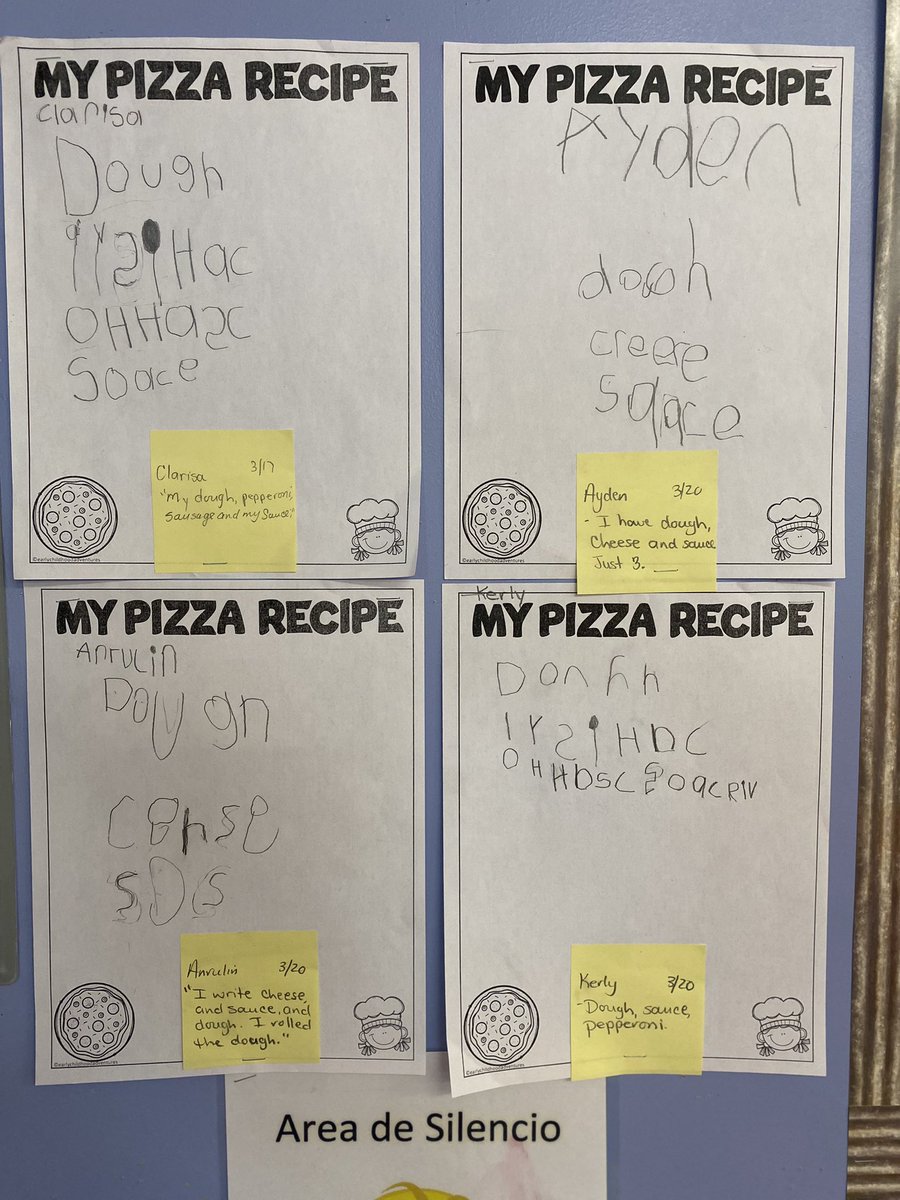 MY PIZZA RECIPE
Clarisa
Dough
OHHasc
Soace
Clarisa 3/17
"My dough, pepperoni,
sausage and my sauce."
©earlychildhoodadventures
MY PIZZA RECIPE
Ayden
dowh
creese
Sqace
Ayden 3/20
- I have dough,
Cheese and sauce
Just 3.
MY PIZZA RECIPE
Anrulin
Dough
cehse
SDS
Anrulin 3/20
"I write cheese,
and sauce, and
dough. I rolled
the dough."
©earlychildhoodadventures
Kerly
MY PIZZA RECIPE
Donhh
OHHDSC SoqcRIV
Kerly 3/20
-Dough, sauce,
pepperoni.
©earlychildhoodadventures
Area de Silencio